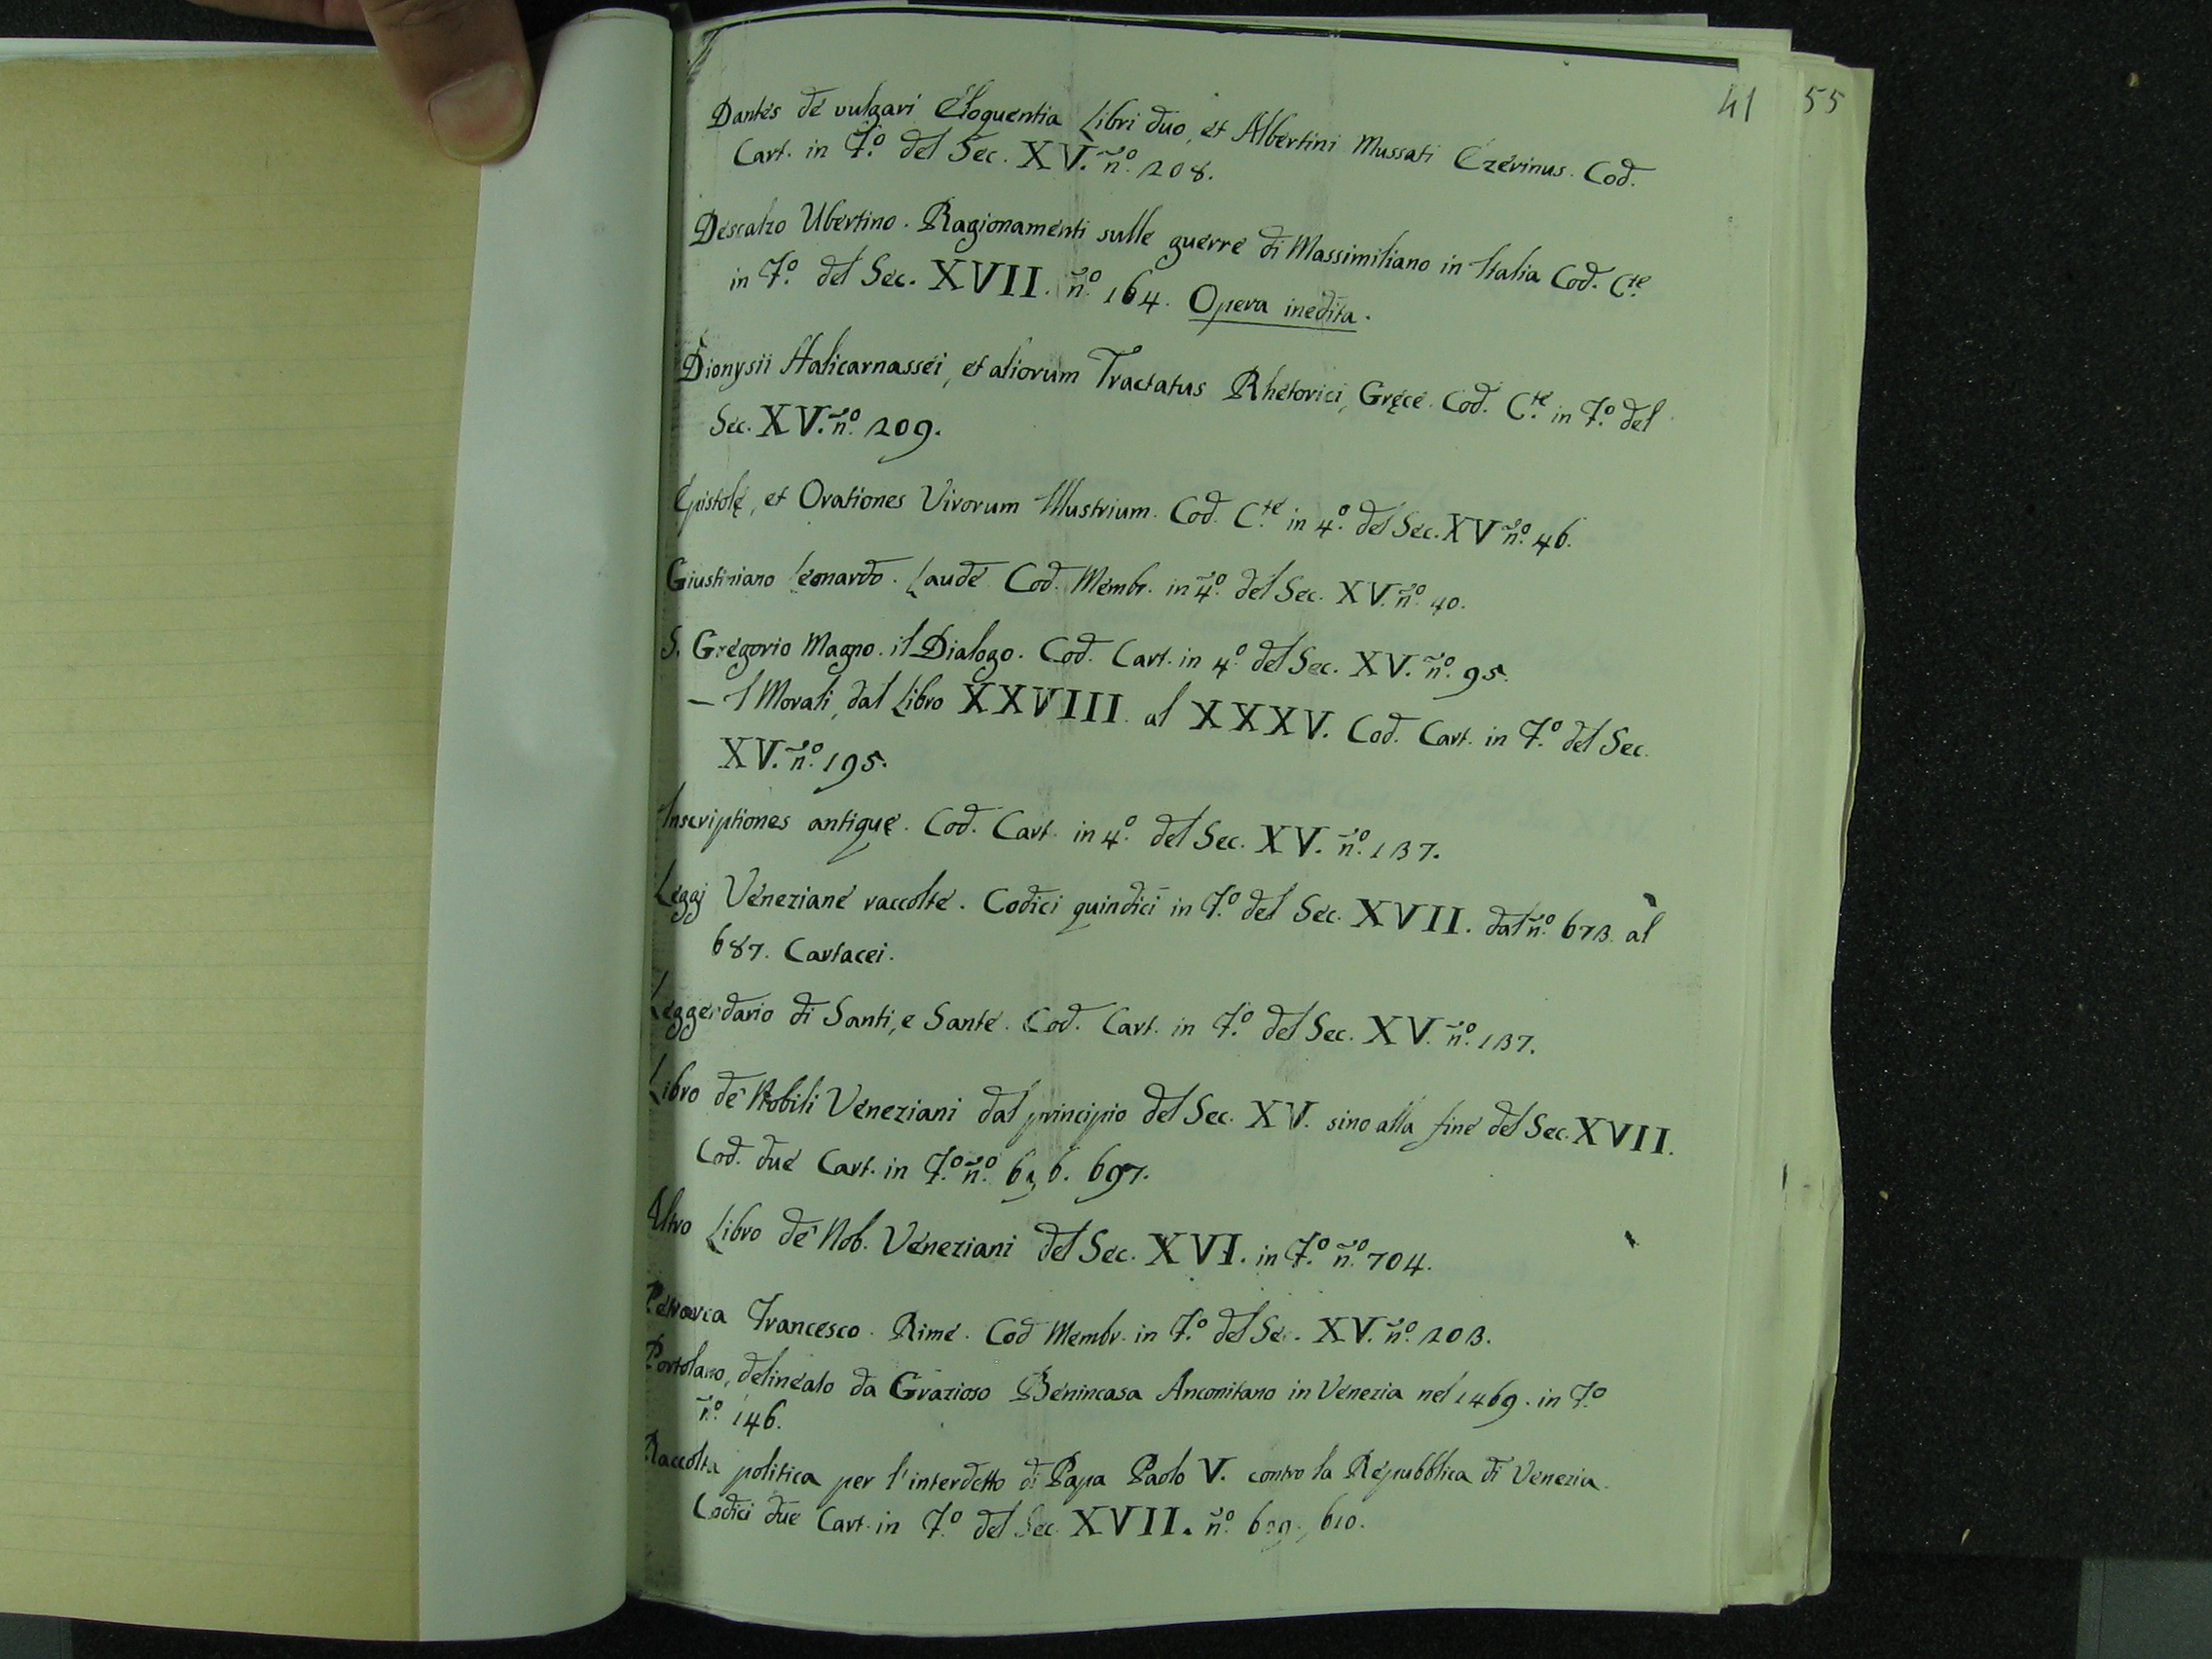 41 55
Dantes de vulgari Eloquentia Libri duo, et Albertini Mussati Ezerinus. Cod.
Cart. in F.º del Sec. XV. ñ.º 208.
Descalzo Ubertino. Ragionamenti sulle guerre di Massimiliano in Italia Cod. C.te
in F.º del Sec. XVII. ñ.º 164. Opera inedita.
Dionysii Halicarnassei, et aliorum Tractatus Rhetorici, Gręce. Cod. C.te in F.º del
Sec. XV. ñ.º 209.
Epistolę, et Orationes Virorum Illustrium. Cod. C.te in 4.º del Sec. XV ñ.º 46.
Giustiniano Leonardo. Laude Cod. Membr. in 4.º del Sec. XV. ñ.º 40.
S. Gregorio Magno. il Dialogo. Cod. Cart. in 4.º del Sec. XV. ñ.º 95.
— I Morali, dal Libro XXVIII. al XXXV. Cod. Cart. in F.º del Sec.
XV. ñ.º 195.
Inscriptiones antiquę. Cod. Cart. in 4.º del Sec. XV. ñ.º 137.
Leggi Veneziane raccolte. Codici quindici in F.º del Sec. XVII. dal ñ.º 673. al
687. Cartacei.
Leggendario di Santi, e Sante. Cod. Cart. in F.º del Sec. XV. ñ.º 137.
Libro de' Nobili Veneziani dal principio del Sec. XV. sino alla fine del Sec. XVII.
Cod. due Cart. in F.º ñ.º 697.
Altro Libro de' Nob. Veneziani del Sec. XVI. in F.º ñ.º 704.
Petrarca Francesco. Rime. Cod Membr. in F.º del Sec. XV. ñ.º 203.
Portolano, delineato da Grazioso Benincasa Anconitano in Venezia nel 1469. in F.º
ñ.º 146.
Raccolta politica per l'interdetto di Papa Paolo V. contro la Repubblica di Venezia.
Codici due Cart. in F.º del Sec. XVII. ñ.º 610.